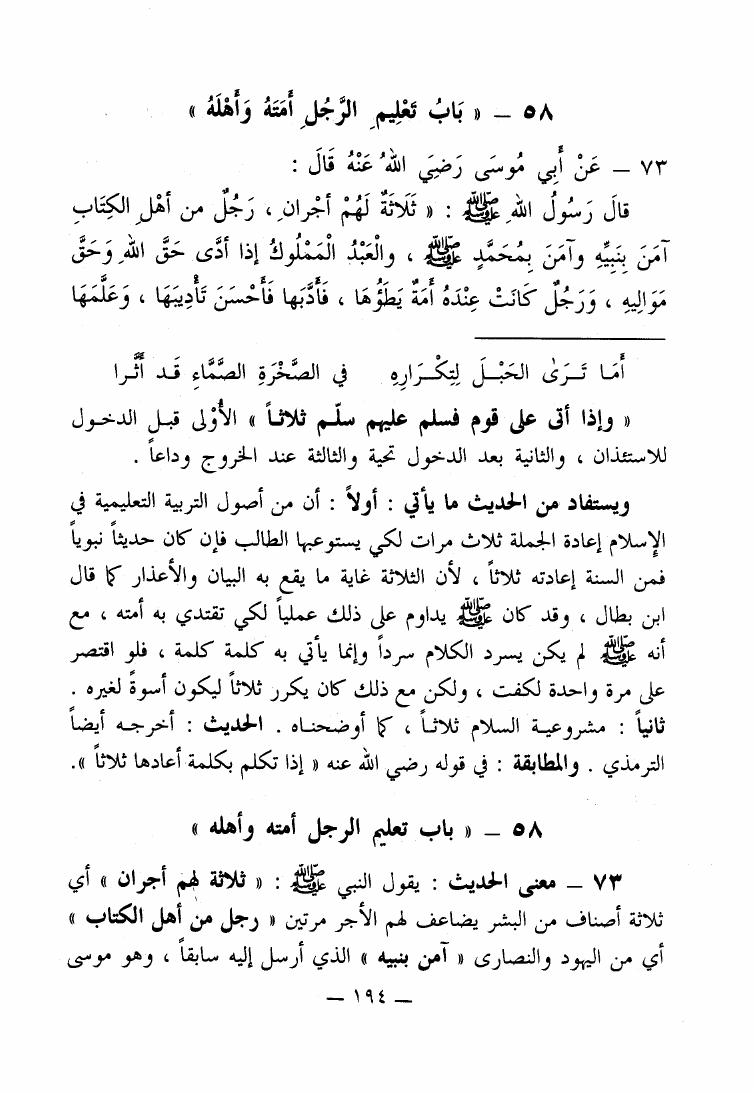 ٥٨ – « بَابُ تَعْلِيمِ الرَّجُلِ أَمَتَهُ وَأَهْلَهُ »
٧٣ – عَنْ أَبِي مُوسَى رَضِيَ اللهُ عَنْهُ قَالَ :
قالَ رَسُولُ اللهِ ﷺ : « ثَلَاثَةٌ لَهُمْ أَجْرانِ ، رَجُلٌ من أهْلِ الكِتَابِ
آمَنَ بِنَبِيِّهِ وآمَنَ بِمُحَمَّدٍ ﷺ ، والعَبْدُ الْمَمْلُوكُ إذا أدَّى حَقَّ اللهِ وَحَقَّ
مَوَالِيهِ ، وَرَجُلٌ كَانَتْ عِنْدَهُ أَمَةٌ يَطَؤُهَا ، فَأَدَّبَها فَأَحْسَنَ تَأْدِيبَهَا ، وَعَلَّمَهَا
أَمَا تَرَىٰ الحَبْلَ لِتِكْرَارِهِ في الصَّخْرَةِ الصَّمَّاءِ قَد أَثَّرا
« وإذا أتى على قوم فسلم عليهم سلّم ثلاثاً » الأُوْلى قبل الدخول
للاستئذان ، والثانية بعد الدخول تحية والثالثة عند الخروج وداعاً .
ويستفاد من الحديث ما يأتي : أولاً : أن من أصول التربية التعليمية في
الإسلام إعادة الجملة ثلاث مرات لكي يستوعبها الطالب فإن كان حديثاً نبوياً
فمن السنة إعادته ثلاثاً ، لأن الثلاثة غاية ما يقع به البيان والأعذار كما قال
ابن بطال ، وقد كان ﷺ يداوم على ذلك عملياً لكي تقتدي به أمته ، مع
أنه ﷺ لم يكن يسرد الكلام سرداً وإنما يأتي به كلمة كلمة ، فلو اقتصر
على مرة واحدة لكفت ، ولكن مع ذلك كان يكرر ثلاثاً ليكون أسوةً لغيره .
ثانياً : مشروعية السلام ثلاثاً ، كما أوضحناه . الحديث : أخرجه أيضاً
الترمذي . والمطابقة : في قوله رضي الله عنه « إذا تكلم بكلمة أعادها ثلاثاً ».
٥٨ – « باب تعليم الرجل أمته وأهله »
٧٣ – معنى الحديث : يقول النبي ﷺ : « ثلاثة لهم أجران » أي
ثلاثة أصناف من البشر يضاعف لهم الأجر مرتين « رجل من أهل الكتاب »
أي من اليهود والنصارى « آمن بنبيه » الذي أرسل إليه سابقاً ، وهو موسى
– ١٩٤ –